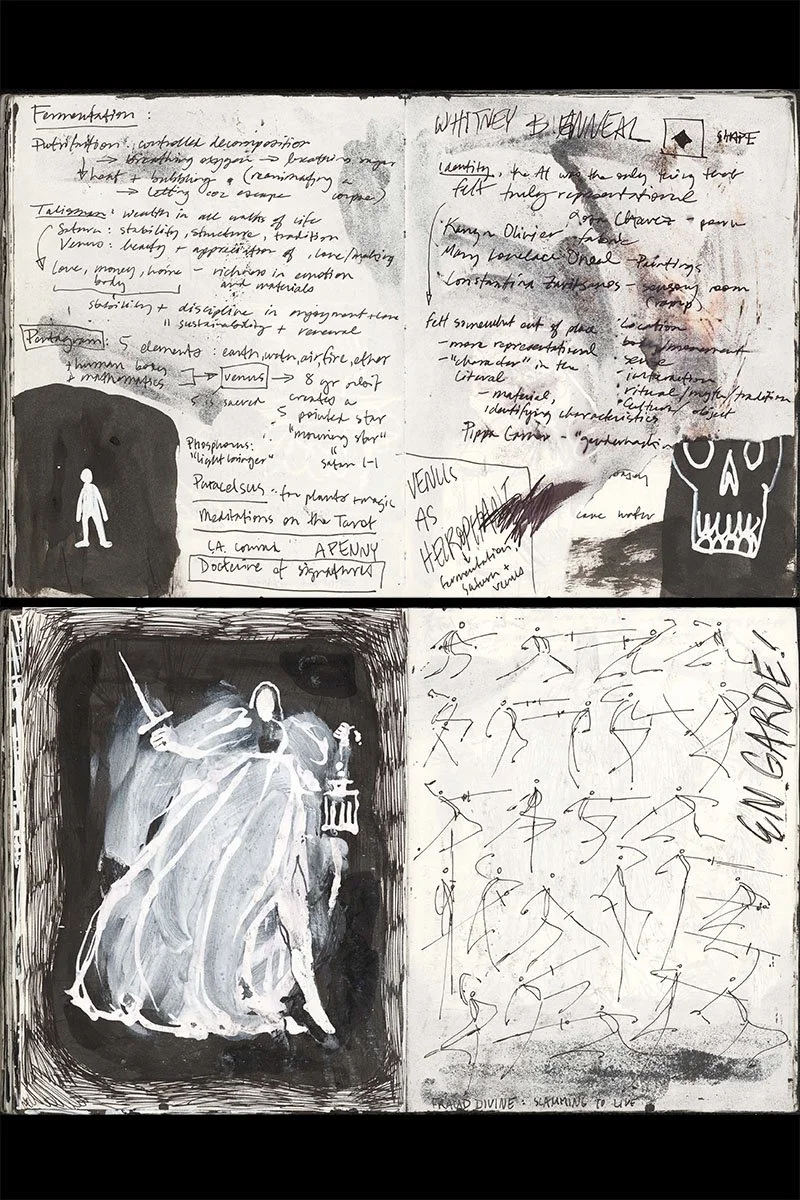 Fermentation:
Putrifaction: controlled decomposition
→ breathing oxygen → breathing sugar
heat + bubbling (reanimating a
→ letting co2 escape corpse)
Talisman: wealth in all walks of life
Saturn: stability, structure, tradition
Venus: beauty + appreciation of, love/making
Love, money, home - richness in emotion
body and materials
stability + discipline in enjoyment + love
" sustainability + renewal
Pentagram: 5 elements: earth, water, air, fire, ether
human body
mathematics → venus → 8 yr orbit
5 is sacred creates a
5 pointed star
Phosphorus: "morning star"
"light bringer" "
saturn
Paracelsus - for plants + magic
Meditations on the Tarot
CA Conrad APENNY
Doctrine of signatures
WHITNEY BIENNEAL SHAPE
identity, the AI was the only thing that
felt truly representational
Chavez -
Olivier
Mary Lovelace O'neal - Paintings
Constantina Zavitsanos - sensory room
(ramp)
felt somewhat out of place
- more representational
- "character" in the
literal
- material,
identifying characteristics
• Location
• body/movement
• sense
• interaction
• ritual/myth/tradition
• Culture/object
Pippa Garner -
VENUS
AS
HEIROPHANT
fermentation,
saturn +
venus
cave water
EN GARDE!
FRAUD DIVINE: SCAMMING TO LIVE